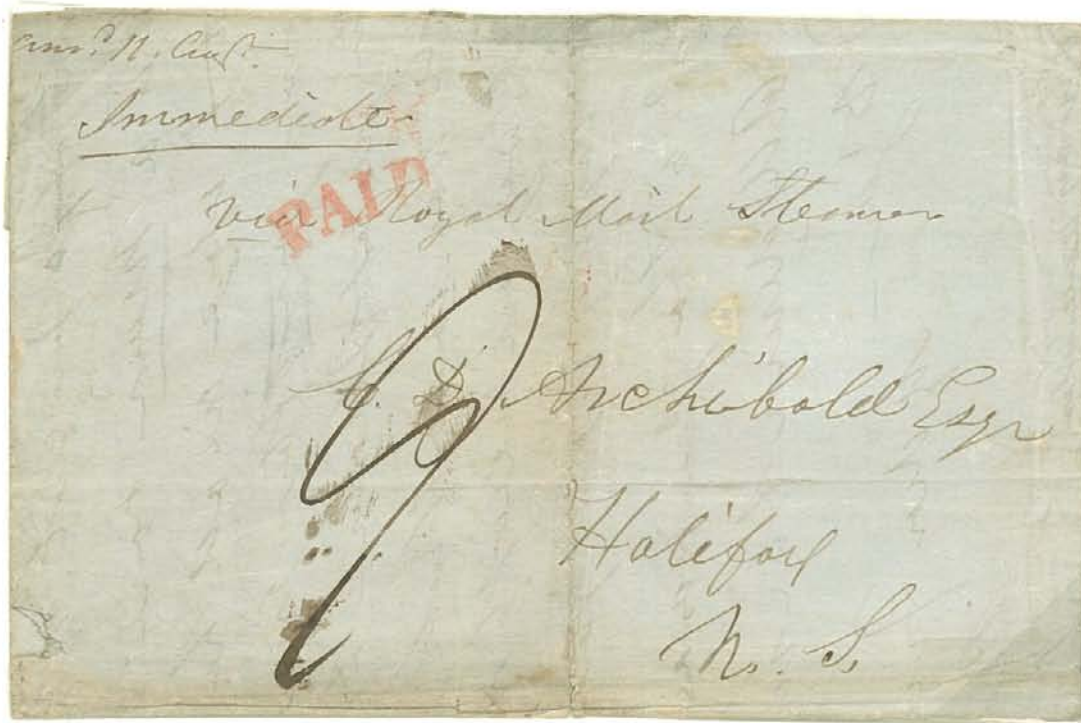 ansd. 11. Augt.
Immediate
PAID
via Royal Mail Steamer
C. D. Archibald Esqr
Halifax
N. S.
9